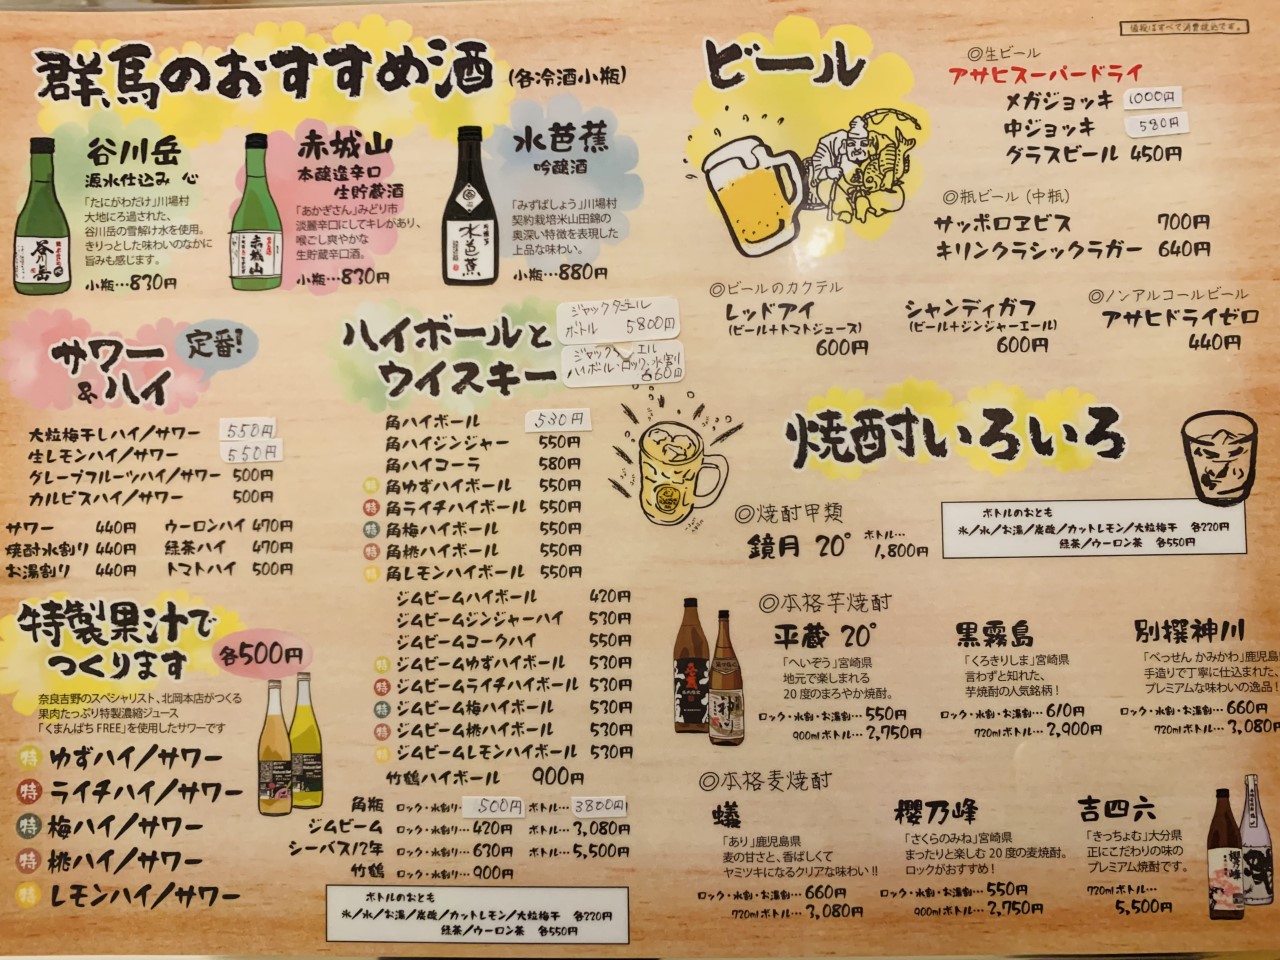 価格はすべて消費税込です。
群馬のおすすめ酒 (各冷酒小瓶)
谷川岳
源水仕込み 心
「たにがわだけ」川場村
大地にろ過された、
谷川岳の雪解け水を使用。
きりっとした味わいのなかに
旨みも感じます。
小瓶…830円
赤城山
本醸造辛口
生貯蔵酒
「あかぎさん」みどり市
淡麗辛口にしてキレがあり、
喉ごし爽やかな
生貯蔵辛口酒。
小瓶…830円
水芭蕉
吟醸酒
「みずばしょう」川場村
契約栽培米山田錦の
奥深い特徴を表現した
上品な味わい。
小瓶…880円
谷川岳
赤城山
水芭蕉
サワー
&ハイ
定番!
大粒梅干しハイ/サワー 550円
生レモンハイ/サワー 550円
グレープフルーツハイ/サワー 500円
カルピスハイ/サワー 500円
サワー 440円 ウーロンハイ 470円
焼酎水割り 440円 緑茶ハイ 470円
お湯割り 440円 トマトハイ 500円
特製果汁で
つくります
各500円
奈良吉野のスペシャリスト、北岡本店がつくる
果肉たっぷり特製濃縮ジュース
「くまんばち FREE」を使用したサワーです
特 ゆずハイ/サワー
特 ライチハイ/サワー
特 梅ハイ/サワー
特 桃ハイ/サワー
特 レモンハイ/サワー
ハイボールと
ウイスキー
ジャックダニエル
ボトル 5800円
ジャック エル
ハイボール・ロック・水割り
660円
角ハイボール 530円
角ハイジンジャー 550円
角ハイコーラ 580円
特 角ゆずハイボール 550円
特 角ライチハイボール 550円
特 角梅ハイボール 550円
特 角桃ハイボール 550円
特 角レモンハイボール 550円
ジムビームハイボール 420円
ジムビームジンジャーハイ 530円
ジムビームコークハイ 550円
特 ジムビームゆずハイボール 530円
特 ジムビームライチハイボール 530円
特 ジムビーム梅ハイボール 530円
特 ジムビーム桃ハイボール 530円
特 ジムビームレモンハイボール 530円
竹鶴ハイボール 900円
角瓶 ロック・水割り… 500円 ボトル… 3800円
ジムビーム ロック・水割り… 420円 ボトル… 3,080円
シーバス12年 ロック・水割り… 630円 ボトル… 5,500円
竹鶴 ロック・水割り… 900円
ボトルのおとも
氷/水/お湯/炭酸/カットレモン/大粒梅干 各220円
緑茶/ウーロン茶 各550円
ビール
◎生ビール
アサヒスーパードライ
メガジョッキ 1000円
中ジョッキ 580円
グラスビール 450円
◎瓶ビール (中瓶)
サッポロヱビス 700円
キリンクラシックラガー 640円
◎ビールのカクテル
レッドアイ
(ビール+トマトジュース)
600円
シャンディガフ
(ビール+ジンジャーエール)
600円
◎ノンアルコールビール
アサヒドライゼロ
440円
焼酎いろいろ
ボトルのおとも
氷/水/お湯/炭酸/カットレモン/大粒梅干 各220円
緑茶/ウーロン茶 各550円
◎焼酎甲類
鏡月 20° ボトル… 1,800円
◎本格芋焼酎
平蔵 20°
「へいぞう」宮崎県
地元で楽しまれる
20度のまろやか焼酎。
ロック・水割・お湯割… 550円
900mlボトル… 2,750円
黒霧島
「くろきりしま」宮崎県
言わずと知れた、
芋焼酎の人気銘柄!
ロック・水割・お湯割… 610円
720mlボトル… 2,900円
別撰神川
「べっせん かみかわ」鹿児島
手造りで丁寧に仕込まれた、
プレミアムな味わいの逸品!
ロック・水割・お湯割… 660円
720mlボトル… 3,080円
◎本格麦焼酎
蟻
「あり」鹿児島県
麦の甘さと、香ばしくて
ヤミツキになるクリアな味わい!!
ロック・水割・お湯割… 660円
720mlボトル… 3,080円
櫻乃峰
「さくらのみね」宮崎県
まったりと楽しむ 20度の麦焼酎。
ロックがおすすめ!
ロック・水割・お湯割… 550円
900mlボトル… 2,750円
吉四六
「きっちょむ」大分県
正にこだわりの味の
プレミアム焼酎です。
720mlボトル…
5,500円